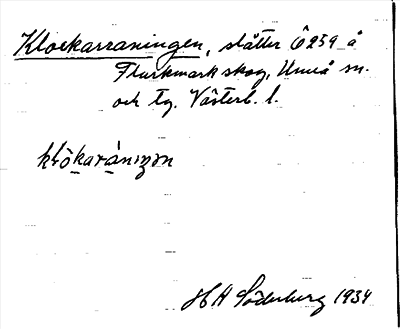 Klockarraningen, slåtter Ö 239 å
Flurkmark skog, Umeå sn.
och tg. Västerb. l.
H A Söderberg 1934